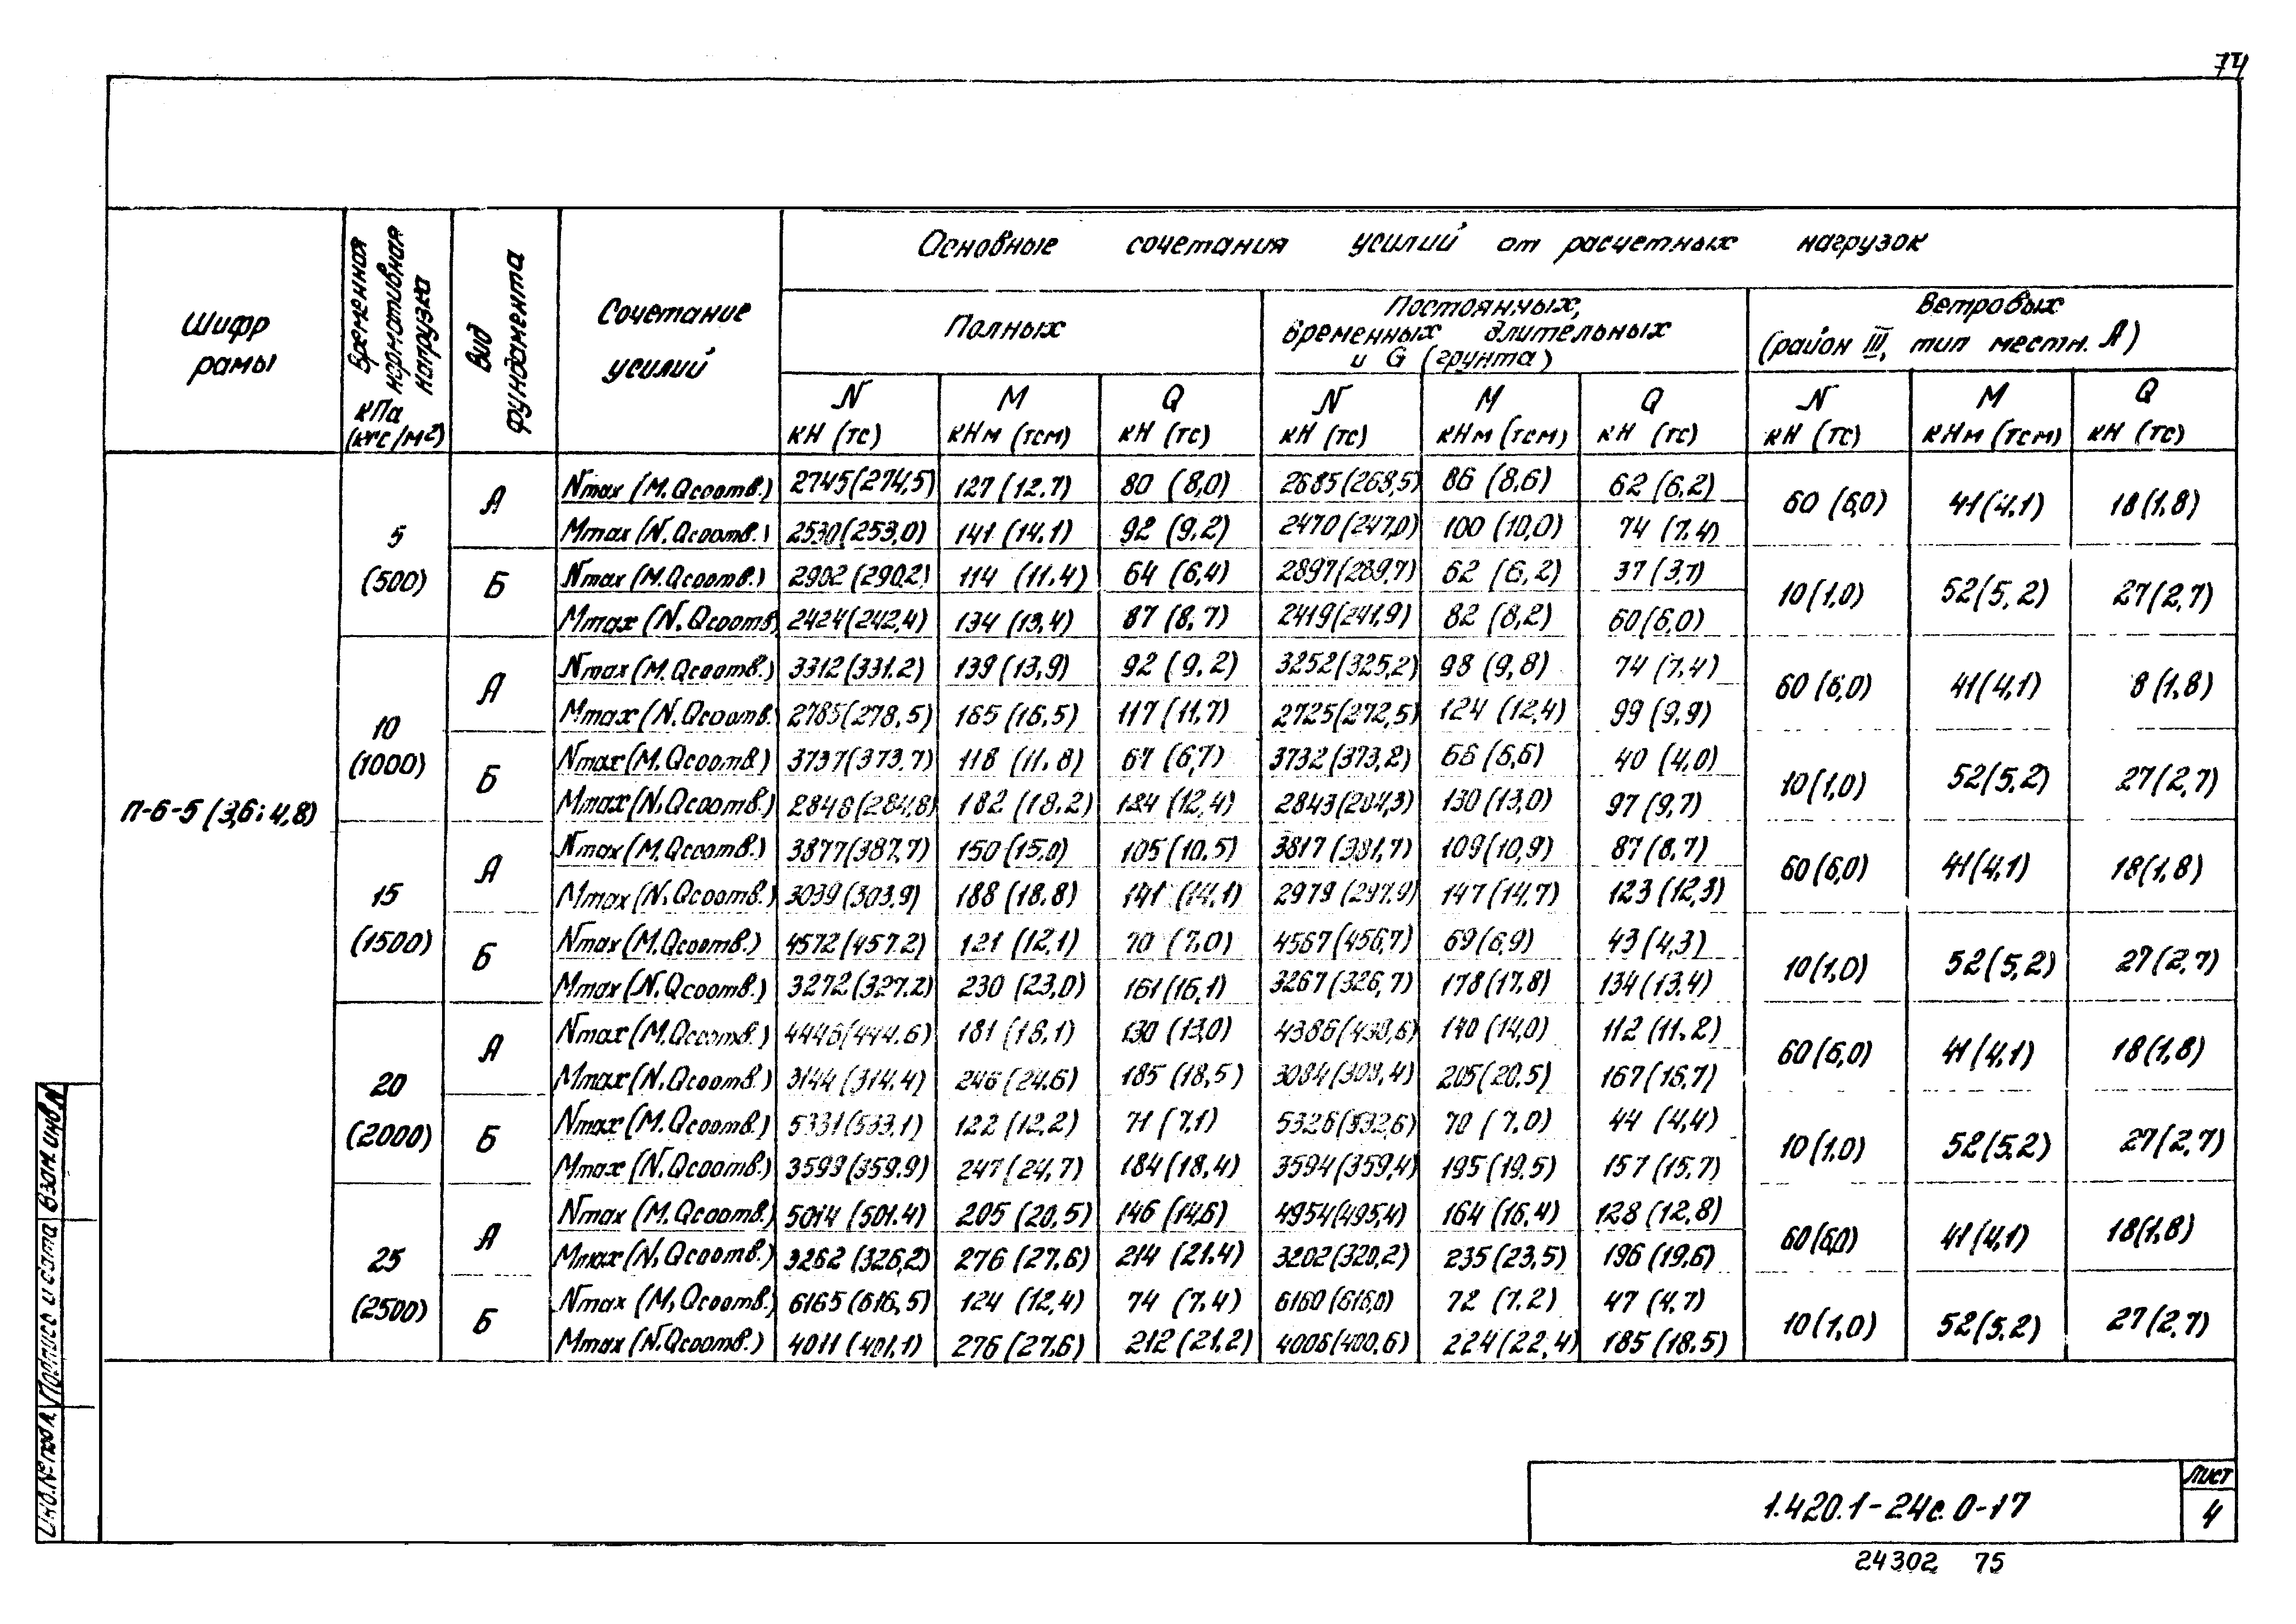 74
Шифр рамы
Временная нормативная нагрузка кПа (кгс/м²)
Вид фундамента
Сочетание усилий
Основные сочетания усилий от расчетных нагрузок
Полных
Постоянных, временных длительных и G (грунта)
Ветровых (район III, тип местн. А)
N кН (тс) M кНм (тсм) Q кН (тс) N кН (тс) M кНм (тсм) Q кН (тс) N кН (тс) M кНм (тсм) Q кН (тс)
П-6-5 (3,6; 4,8)
5 (500)
А
Nmax (M, Qсоотв.) 2745 (274,5) 127 (12,7) 80 (8,0) 2685 (268,5) 86 (8,6) 62 (6,2) 60 (6,0) 41 (4,1) 18 (1,8)
Mmax (N, Qсоотв.) 2530 (253,0) 141 (14,1) 92 (9,2) 2470 (247,0) 100 (10,0) 74 (7,4)
Б
Nmax (M, Qсоотв.) 2902 (290,2) 114 (11,4) 64 (6,4) 2897 (289,7) 62 (6,2) 37 (3,7) 10 (1,0) 52 (5,2) 27 (2,7)
Mmax (N, Qсоотв. 2424 (242,4) 134 (13,4) 87 (8,7) 2419 (241,9) 82 (8,2) 60 (6,0)
10 (1000)
А
Nmax (M, Qсоотв.) 3312 (331,2) 139 (13,9) 92 (9,2) 3252 (325,2) 98 (9,8) 74 (7,4) 60 (6,0) 41 (4,1) 8 (1,8)
Mmax (N, Qсоотв. 2785 (278,5) 165 (16,5) 117 (11,7) 2725 (272,5) 124 (12,4) 99 (9,9)
Б
Nmax (M, Qсоотв.) 3737 (373,7) 118 (11,8) 67 (6,7) 3732 (373,2) 66 (6,6) 40 (4,0) 10 (1,0) 52 (5,2) 27 (2,7)
Mmax (N, Qсоотв.) 2848 (284,8) 182 (18,2) 124 (12,4) 2843 (284,3) 130 (13,0) 97 (9,7)
15 (1500)
А
Nmax (M, Qсоотв.) 3877 (387,7) 150 (15,0) 105 (10,5) 3817 (381,7) 109 (10,9) 87 (8,7) 60 (6,0) 41 (4,1) 18 (1,8)
Mmax (N, Qсоотв.) 3039 (303,9) 188 (18,8) 141 (14,1) 2979 (297,9) 147 (14,7) 123 (12,3)
Б
Nmax (M, Qсоотв.) 4572 (457,2) 121 (12,1) 70 (7,0) 4567 (456,7) 69 (6,9) 43 (4,3) 10 (1,0) 52 (5,2) 27 (2,7)
Mmax (N, Qсоотв.) 3272 (327,2) 230 (23,0) 161 (16,1) 3267 (326,7) 178 (17,8) 134 (13,4)
20 (2000)
А
Nmax (M, Qсоотв.) 4446 (444,6) 181 (18,1) 130 (13,0) 4386 (438,6) 140 (14,0) 112 (11,2) 60 (6,0) 41 (4,1) 18 (1,8)
Mmax (N, Qсоотв.) 3144 (314,4) 246 (24,6) 185 (18,5) 3084 (308,4) 205 (20,5) 167 (16,7)
Б
Nmax (M, Qсоотв.) 5331 (533,1) 122 (12,2) 71 (7,1) 5326 (532,6) 70 (7,0) 44 (4,4) 10 (1,0) 52 (5,2) 27 (2,7)
Mmax (N, Qсоотв.) 3599 (359,9) 247 (24,7) 184 (18,4) 3594 (359,4) 195 (19,5) 157 (15,7)
25 (2500)
А
Nmax (M, Qсоотв.) 5014 (501,4) 205 (20,5) 146 (14,6) 4954 (495,4) 164 (16,4) 128 (12,8) 60 (6,0) 41 (4,1) 18 (1,8)
Mmax (N, Qсоотв.) 3262 (326,2) 276 (27,6) 214 (21,4) 3202 (320,2) 235 (23,5) 196 (19,6)
Б
Nmax (M, Qсоотв.) 6165 (616,5) 124 (12,4) 74 (7,4) 6160 (616,0) 72 (7,2) 47 (4,7) 10 (1,0) 52 (5,2) 27 (2,7)
Mmax (N, Qсоотв.) 4011 (401,1) 276 (27,6) 212 (21,2) 4006 (400,6) 224 (22,4) 185 (18,5)
Инв.№подл. Подпись и дата Взам.инв.№
1.420.1-24с. 0-17
Лист
4
24302 75